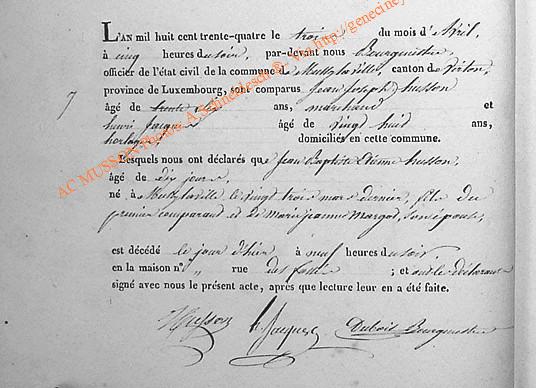 L'AN mil huit cent trente-quatre le trois du mois d'Avril,
à cinq heures du soir, par-devant nous Bourgmestre
officier de l'état civil de la commune de Mussylaville, canton de Virton,
province de Luxembourg, sont comparus Jean joseph husson
7
âgé de trente ans, marchand et
henri Jacques âgé de vingt huit ans,
horloger domiciliés en cette commune.
Lesquels nous ont déclarés que Jean Baptiste Etienne husson,
âgé de dix jours
né à Mussylaville le vingt trois mars dernier, fils du
premier comparant et de Marie jeanne Margot, son épouse,
est décédé le jour d'hier à neuf heures du soir
en la maison n° " rue des fossés ; et ont les déclarans
signé avec nous le présent acte, après que lecture leur en a été faite.
Husson h. Jacques Dubois Bourgmestre
AC MUSSON Photos A.Schneidesch © - Via http://geneciney